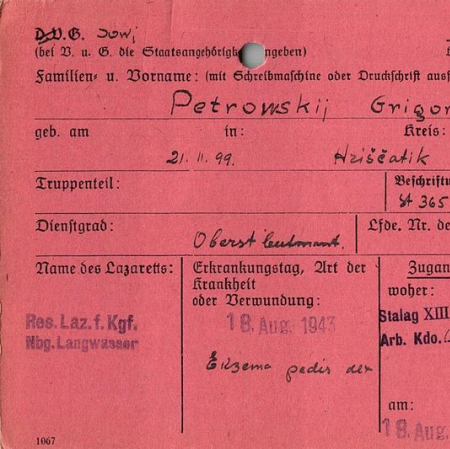 D.V.G. Sowj
(bei V. u. G. die Staatsangehörigk ngeben)
Familien- u. Vorname: (mit Schreibmaschine oder Druckschrift ausf
Petrowskij Grigor
geb. am in: Kreis:
21. 11. 99. Hriščatik
Truppenteil: Beschriftu
St 365
Dienstgrad: Lfde. Nr. de
Oberstleutnant.
Name des Lazaretts: Erkrankungstag, Art der Krankheit oder Verwundung: Zugan
woher:
Res. Laz. f. Kgf.
Nbg. Langwasser
18. Aug. 1943
Stalag XIII
Arb. Kdo.
Ekzema pedis
am:
18. Aug.
1067